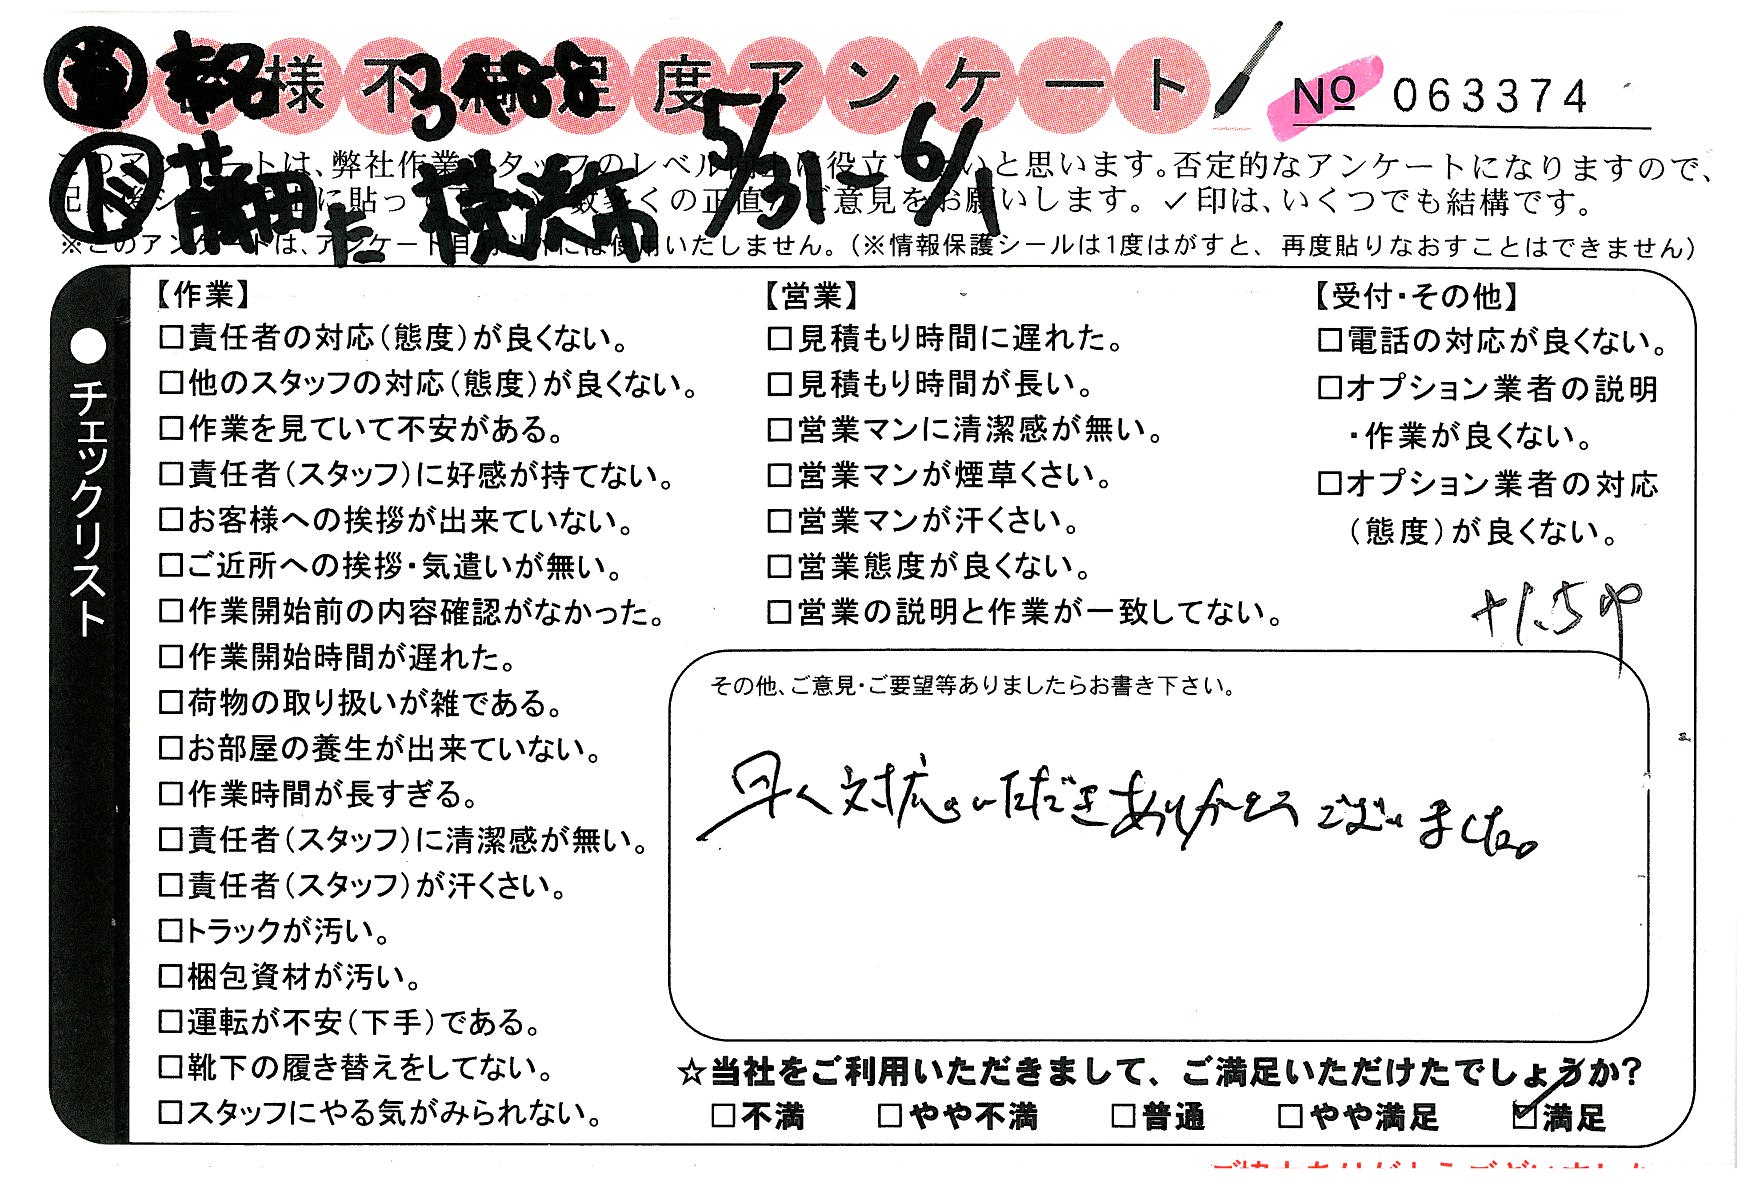 様不満足度アンケート
No 063374
5/31〜6/1
このアンケートは、弊社作業スタッフのレベル向上に役立てたいと思います。否定的なアンケートになりますので、
に貼って 数多くの正直なご意見をお願いします。✓印は、いくつでも結構です。
※このアンケートは、アンケート目的以外には使用いたしません。(※情報保護シールは1度はがすと、再度貼りなおすことはできません)
●チェックリスト
【作業】
□責任者の対応(態度)が良くない。
□他のスタッフの対応(態度)が良くない。
□作業を見ていて不安がある。
□責任者(スタッフ)に好感が持てない。
□お客様への挨拶が出来ていない。
□ご近所への挨拶・気遣いが無い。
□作業開始前の内容確認がなかった。
□作業開始時間が遅れた。
□荷物の取り扱いが雑である。
□お部屋の養生が出来ていない。
□作業時間が長すぎる。
□責任者(スタッフ)に清潔感が無い。
□責任者(スタッフ)が汗くさい。
□トラックが汚い。
□梱包資材が汚い。
□運転が不安(下手)である。
□靴下の履き替えをしてない。
□スタッフにやる気がみられない。
【営業】
□見積もり時間に遅れた。
□見積もり時間が長い。
□営業マンに清潔感が無い。
□営業マンが煙草くさい。
□営業マンが汗くさい。
□営業態度が良くない。
□営業の説明と作業が一致してない。
【受付・その他】
□電話の対応が良くない。
□オプション業者の説明
・作業が良くない。
□オプション業者の対応
(態度)が良くない。
その他、ご意見・ご要望等ありましたらお書き下さい。
早く対応いただきありがとうございました。
☆当社をご利用いただきまして、ご満足いただけたでしょうか?
□不満 □やや不満 □普通 □やや満足 ☑満足